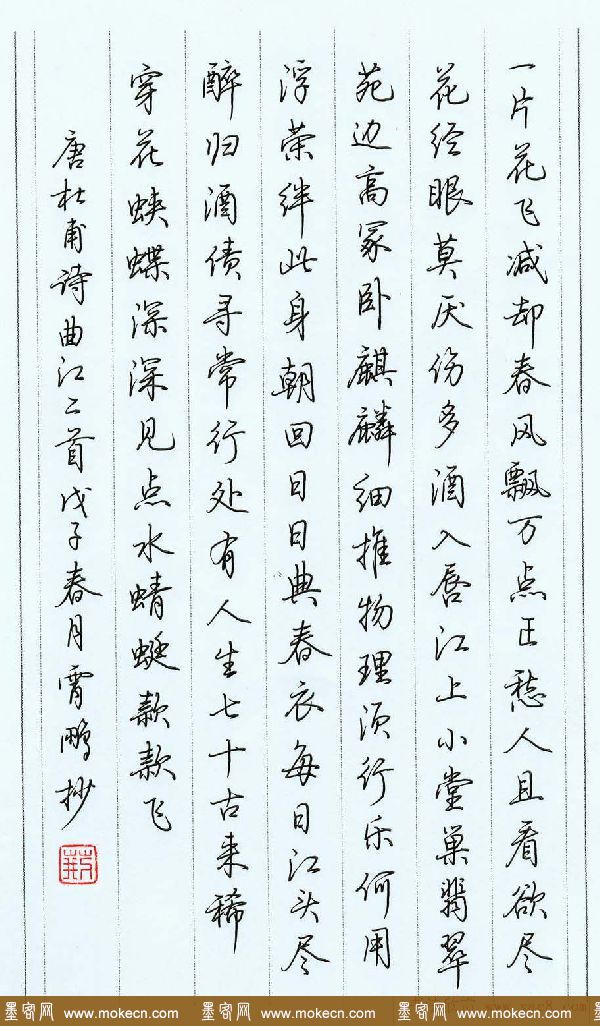 一片花飞减却春风飘万点正愁人且看欲尽
花经眼莫厌伤多酒入唇江上小堂巢翡翠
苑边高冢卧麒麟细推物理须行乐何用
浮荣绊此身朝回日日典春衣每日江头尽
醉归酒债寻常行处有人生七十古来稀
穿花蛱蝶深深见点水蜻蜓款款飞
唐杜甫诗曲江二首戊子春月霄鹏抄
墨客网 www.mokecn.com 墨客网 www.mokecn.com 墨客网 www.mokecn.com